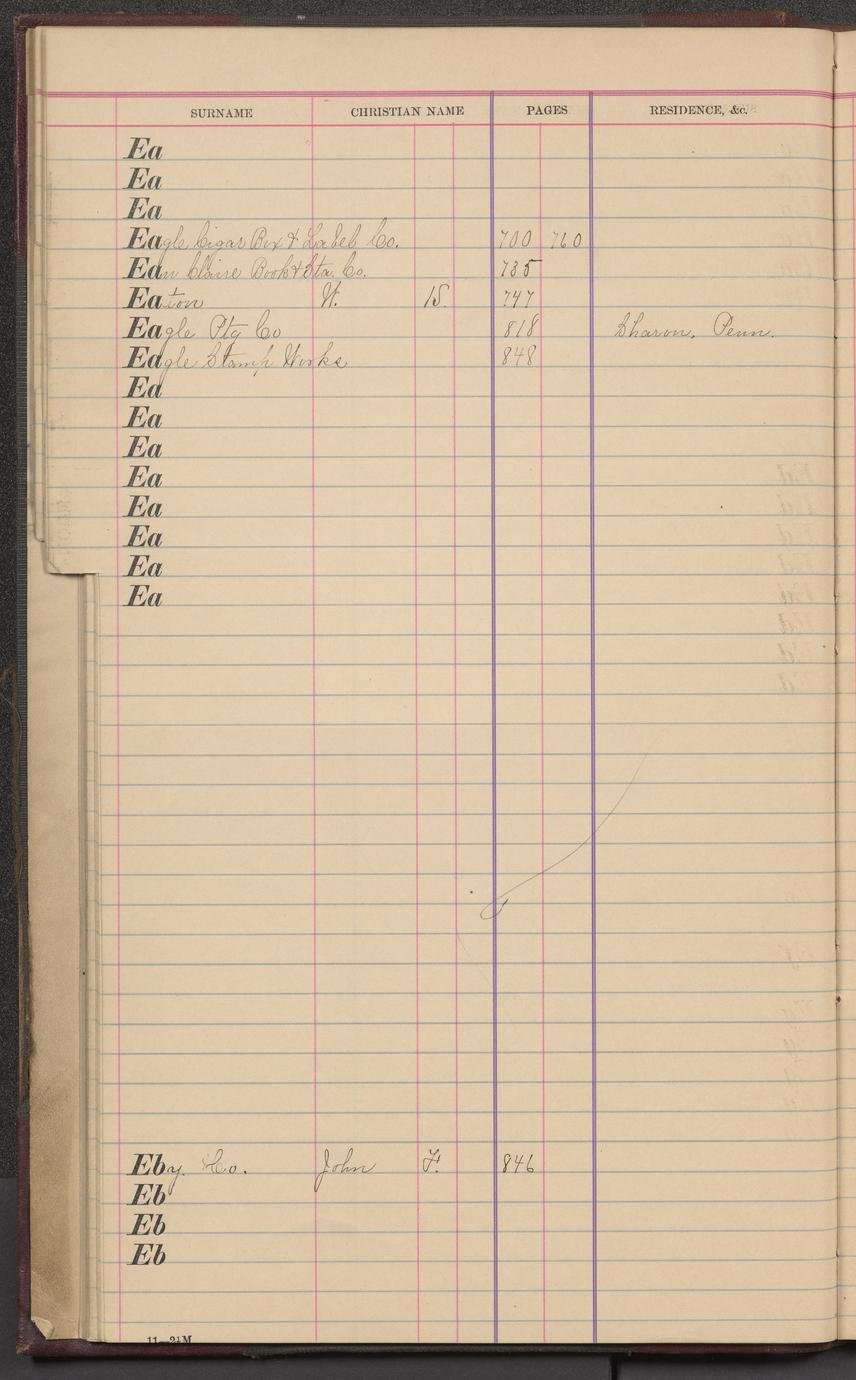 SURNAME CHRISTIAN NAME PAGES RESIDENCE, &c.
Ea
Ea
Ea
Eagle Cigar Box & Label Co. 700 760
Eau Claire Book & Sta. Co. 735
Eaton W. 747
Eagle Ptg Co 818 Sharon, Penn.
Eagle Stamp Works 848
Ea
Ea
Ea
Ea
Ea
Ea
Ea
Ea
Eby Co. John F. 846
Eb
Eb
Eb
11—2½M